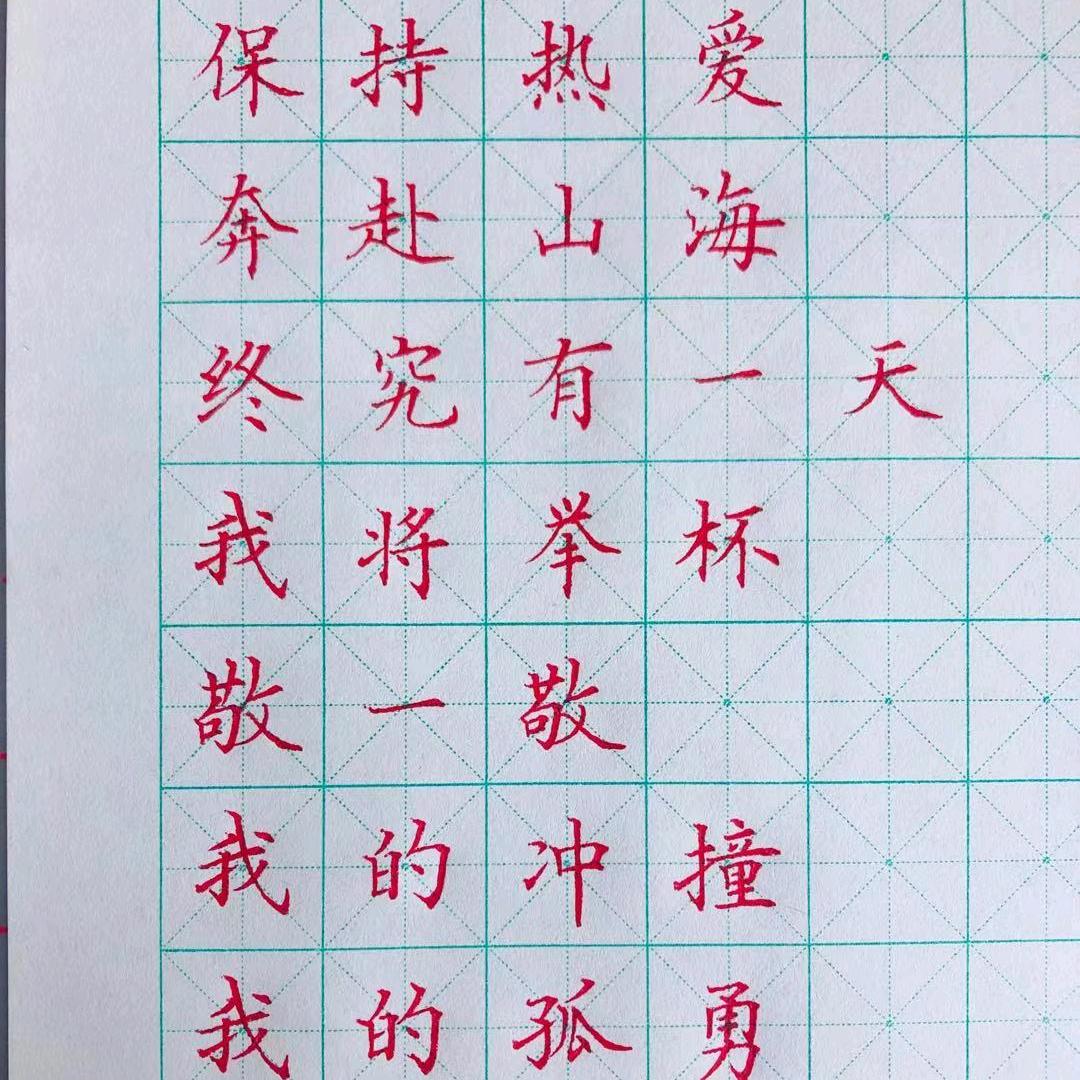 保持热爱
奔赴山海
终究有一天
我将举杯
敬一敬
我的冲撞
我的孤勇